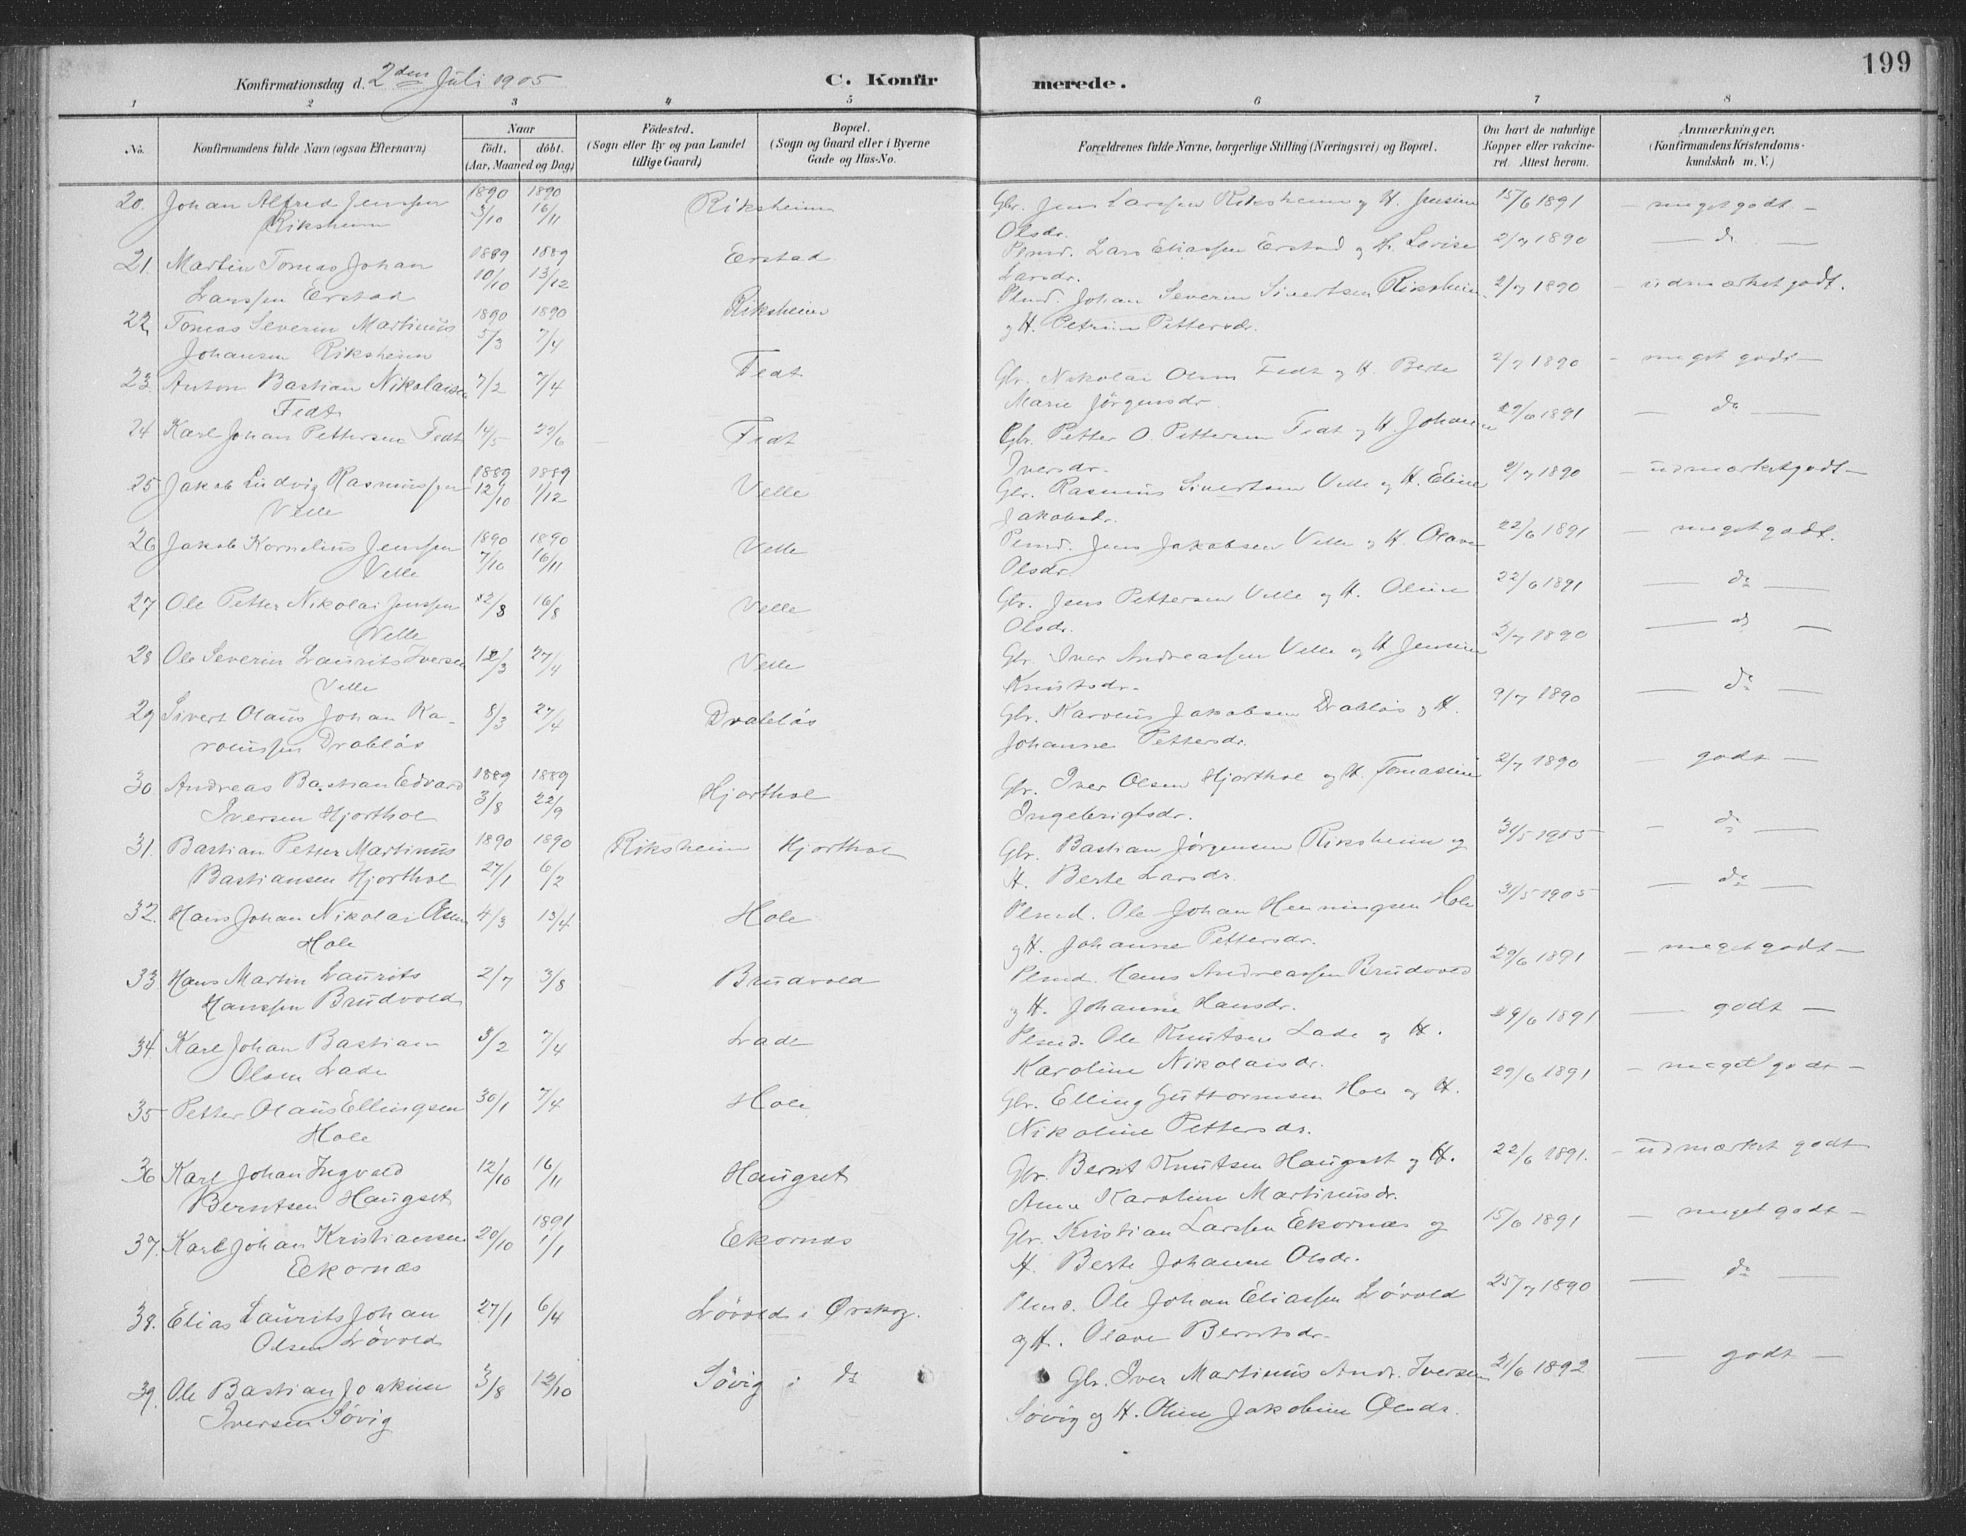 199
Konfirmationsdag d. 2den Juli 1905
C. Konfir
merede.
1 2 3 4 5 6 7 8
No.
Konfirmandens fulde Navn (ogsaa Efternavn)
Naar
födt. döbt.
(Aar, Maaned og Dag)
Födested.
(Sogn eller By og paa Landet
tillige Gaard)
Bopæl.
(Sogn og Gaard eller i Byerne
Gade og Hus-No.
Forældrenes fulde Navne, borgerlige Stilling (Næringsvei) og Bopæl.
Om havt de naturlige
Kopper eller vakcine-
ret. Attest herom.
Anmærkninger.
(Konfirmandens Kristendoms-
kundskab m. V.)
20. Johan Alfred Jenssen 1890 1890 Riksheim Gbr. Jens Larssen Riksheim og H. Jensine 15/6 1891 – meget godt –
Riksheim 3/10 16/11 Olsdr.
21. Martin Tomas Johan 1889 1889 Erstad Plmd. Lars Eliassen Erstad og H. Lovise 2/7 1890 — do —
Larssen Erstad 10/10 13/12 Larsdr.
22. Tomas Severin Martinus 1890 1890 Riksheim Plmd. Johan Severin Sivertsen Riksheim 2/7 1890 – udmærket godt.
Johansen Riksheim 5/3 7/4 og H. Petrine Pettersdr.
23. Anton Bastian Nikolaisen 7/2 7/4 Fedt Gbr. Nikolai Olsen Fedt og H. Berte 2/7 1890 – meget godt –
Fedt Marie Jörgensdr.
24 Karl Johan Pettersen Fedt 14/5 22/6 Fedt Gbr. Petter O. Pettersen Fedt og H. Johanne 29/6 1891 — do —
Iversdr.
25 Jakob Ludvig Rasmussen 1889 1889 Velle Gbr. Rasmus Sivertsen Velle og H. Eline 2/7 1890 – udmærket godt –
Velle 12/10 1/12 Jakobsdr.
26 Jakob Kornelius Jenssen 1890 1890 Velle Plmd. Jens Jakobsen Velle og H. Olave 22/6 1891 – meget godt.
Velle 7/10 16/11 Olsdr.
27 Ole Petter Nikolai Jenssen 12/3 16/8 Velle Gbr. Jens Pettersen Velle og H. Oline 22/6 1891 — do —
Velle Olsdr.
28 Ole Severin Laurits Iversen 12/3 27/4 Velle Gbr. Iver Andreassen Velle og H. Jensine 2/7 1890 — do —
Velle Knutsdr.
29 Sivert Olaus Johan Ka- 8/3 27/4 Drabløs Gbr. Karolus Jakobsen Drabløs og H. 9/7 1890 — do —
rolussen Drabløs Johanne Pettersdr.
30 Andreas Bastian Edvard 1889 1889 Hjorthol Gbr. Iver Olsen Hjorthol og H. Tomasine 2/7 1890 – godt –
Iversen Hjorthol 3/8 22/9 Ingebrigtsdr.
31. Bastian Petter Martinus 1890 1890 Riksheim Hjorthol Gbr. Bastian Jørgensen Riksheim og 31/5 1905 – do —
Bastiansen Hjorthol 27/1 6/2 H. Berte Larsdr.
32. Hans Johan Nikolai Olsen 4/3 13/4 Hole Plmd. Ole Johan Henningsen Hole 31/5 1905 — do —
Hole og H. Johanne Pettersdr.
33 Hans Martin Laurits 2/7 3/8 Brudvold Plmd. Hans Andreassen Brudvold 29/6 1891 – meget godt –
Hanssen Brudvold og H. Johanne Hansdr.
34 Karl Johan Bastian 3/2 7/4 Lade Plmd. Ole Knutsen Lade og H. 29/6 1891 — godt –
Olsen Lade Karoline Nikolaisdr.
35 Petter Olaus Ellingsen 30/1 7/4 Hole Gbr. Elling Guttormsen Hole og H. 29/6 1891 – meget godt –
Hole Nikoline Pettersdr.
36 Karl Johan Ingvald 12/10 16/11 Haugset Gbr. Bernt Knutsen Haugset og H. 22/6 1891. – udmærket godt
Berntsen Haugset Anne Karoline Martinusdr.
37. Karl Johan Kristiansen 20/10 1891 1/1 Ekornæs Gbr. Kristian Larssen Ekornæs og 15/6 1891 — meget godt –
Ekornæs H. Berte Johanne Olsdr.
38. Elias Laurits Johan 27/1 6/4 Løvold i Ørskog. Plmd. Ole Johan Eliassen Løvold 25/7 1890 — do —
Olsen Løvold og H. Olave Berntsdr.
39. Ole Bastian Joakim 3/8 12/10 Søvig i do Gbr. Iver Martinus Andr. Iversen 21/6 1892 — godt —
Iversen Søvig Søvig og H. Oline Jakobine Olsdr.